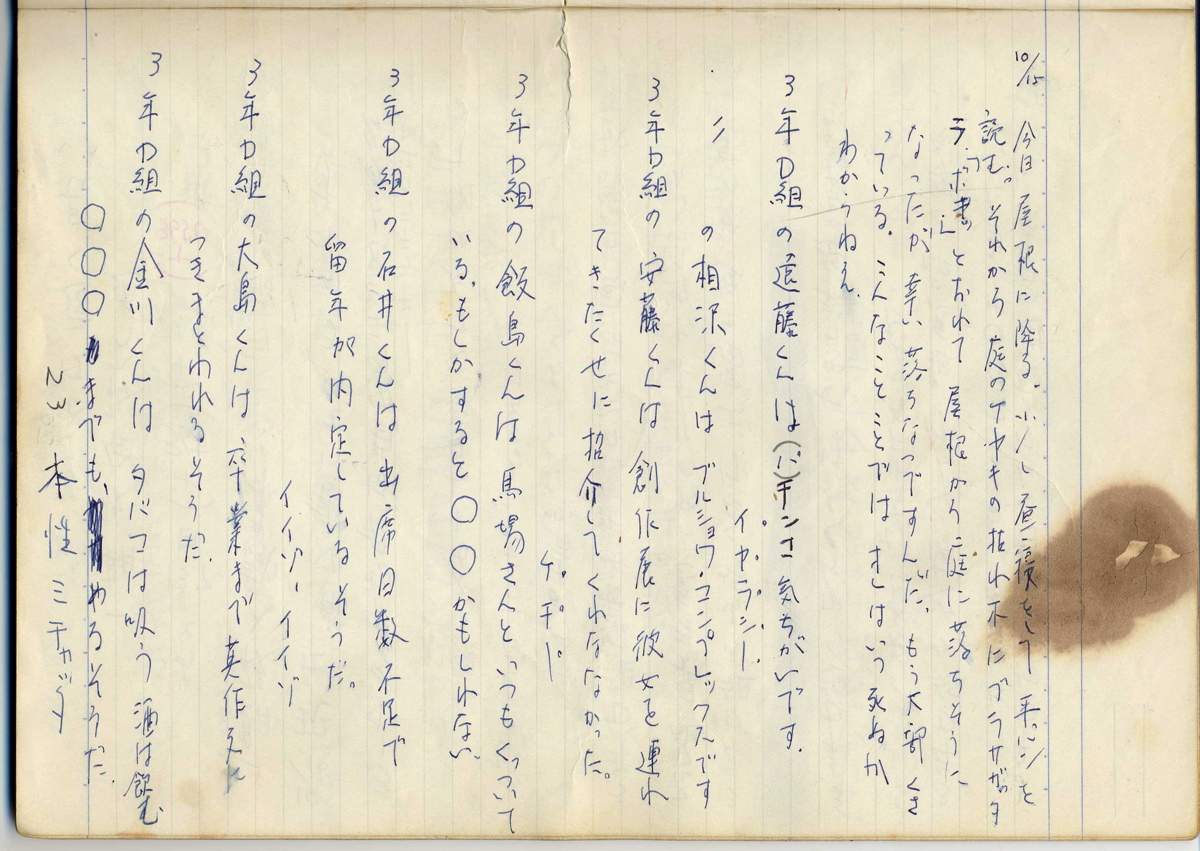 10/15 今日屋根に降る。小人し昼寝をして平パンを
読む。それから庭のケヤキの枯れ木にブラサガッタ
ラ、「ボキ」とおれて屋根から庭に落ちそうに
なったが、幸い落ちなつですんだ。もう大部くさ
っている。こんなことことでは オレはいつ死ぬか
わからねえ。
3年D組の遠藤くんは(パ)チンコ気ちがいです。
イヤラシー。
〃 の相沢くんは ブルショワ・コンプレックスです
3年D組の安藤くんは創作展に彼女を連れ
てきたくせに紹介してくれななかった。
ケチー
3年D組の飯島くんは馬場さんといつもくっついて
いる。もしかすると〇〇かもしれない
3年D組の石井くんは出席日数不足で
留年が内定しているそうだ。
イイゾー イイゾ
3年D組の大島くんは卒業まで英作文に
つきまとわれるそうだ。
3年D組の金川くんは タバコは吸う 酒は飲む
〇〇〇までも、やるそうだ。
23 本性ミチャッタ